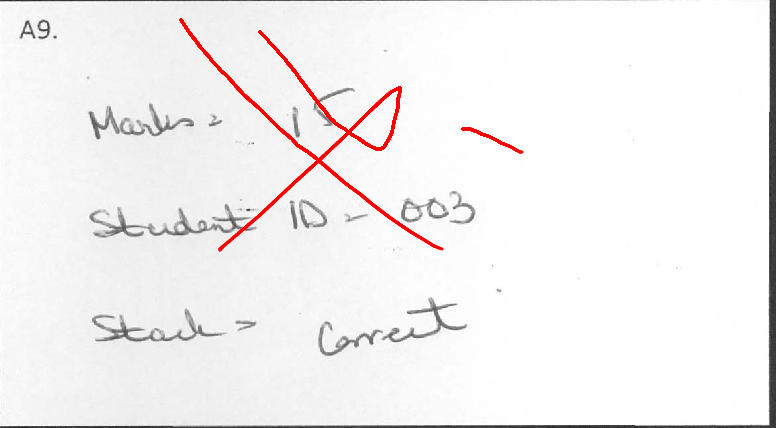 A9.
Marks = 15
Student ID = 003
Stack = Correct